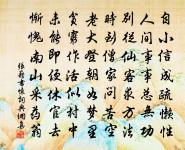 自小信成疏懶性
人間事事總無功
別從仙客求方法
時到僧家問苦空
老大登朝如夢裏
貧窮作活似村中
未能即便休官去
慚愧南山采藥翁
張籍書懷詞典網